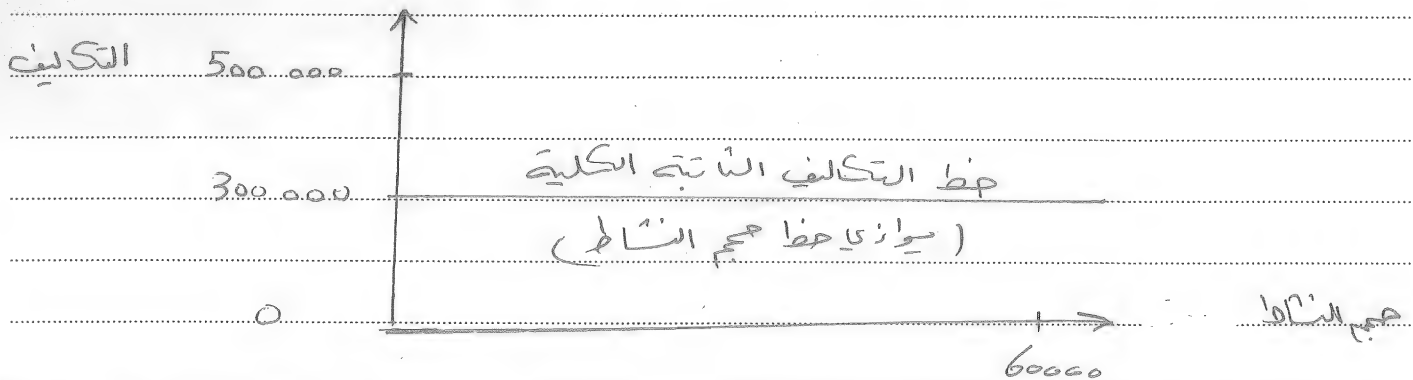 التكاليف 500.000
خط التكاليف الثابتة الكلية
300.000
(يوازي خط حجم النشاط)
0 حجم النشاط
60000